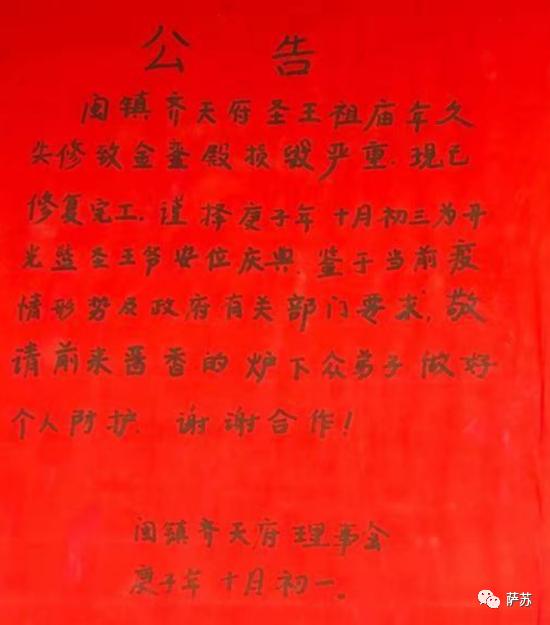 公告
闽镇齐天府圣王祖庙年久
失修致金銮殿损毁严重.现已
修复完工.谨择庚子年十月初三为开
光暨圣王爷安位庆典.鉴于当前疫
情形势及政府有关部门要求,敬
请前来晋香的炉下众弟子做好
个人防护.谢谢合作!
闽镇齐天府理事会
庚子年十月初一。
萨苏